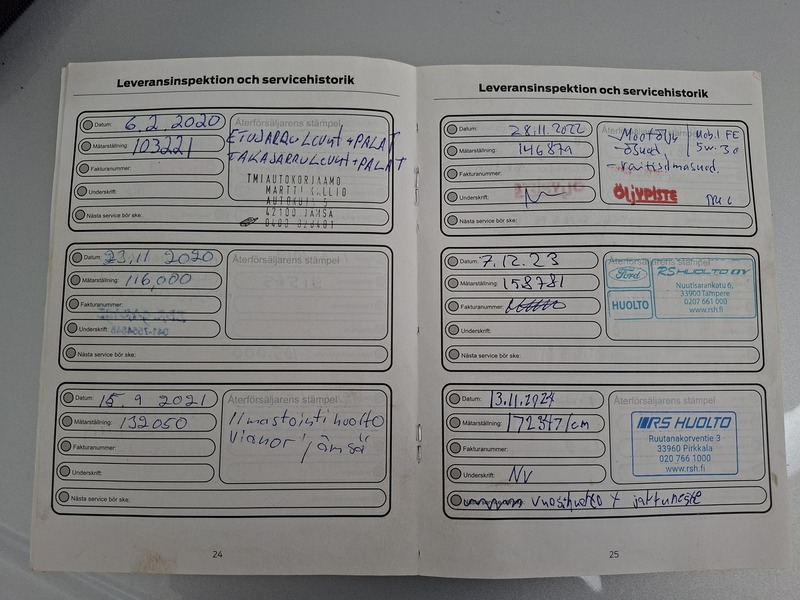 Leveransinspektion och servicehistorik
Datum: 6.2.2020
Mätarställning: 103221
Fakturanummer:
Underskrift:
Nästa service bör ske:
Återförsäljarens stämpel
ETUJARRULEVYT + PALAT
TAKAJARRULEVYT + PALAT
TMI AUTOKORJAAMO
MARTTI KALLIO
AUTOKUJA 5
42100 JÄMSÄ
Datum: 23.11 2020
Mätarställning: 116,000
Fakturanummer:
Underskrift:
Nästa service bör ske:
Återförsäljarens stämpel
Datum: 15.9 2021
Mätarställning: 132050
Fakturanummer:
Underskrift:
Nästa service bör ske:
Återförsäljarens stämpel
Ilmastointihuolto
Vianor Jämsä
24
Leveransinspektion och servicehistorik
Datum: 28.11.2022
Mätarställning: 146879
Fakturanummer:
Underskrift:
Nästa service bör ske:
Återförsäljarens stämpel
- Moot.öljy Mobil FE
- ösuod. 5w.30
- raitisilmasuod.
ÖLJYPISTE
Datum: 7.12.23
Mätarställning: 158781
Fakturanummer:
Underskrift:
Nästa service bör ske:
Återförsäljarens stämpel
Ford
HUOLTO
RS HUOLTO OY
Nuutisarankatu 6,
33900 Tampere
0207 661 000
www.rsh.fi
Datum: 13.11.2024
Mätarställning: 172347/km
Fakturanummer:
Underskrift: NV
Nästa service bör ske:
vuosihuolto + jarruneste
Återförsäljarens stämpel
RS HUOLTO
Ruutanakorventie 3
33960 Pirkkala
020 766 1000
www.rsh.fi
25